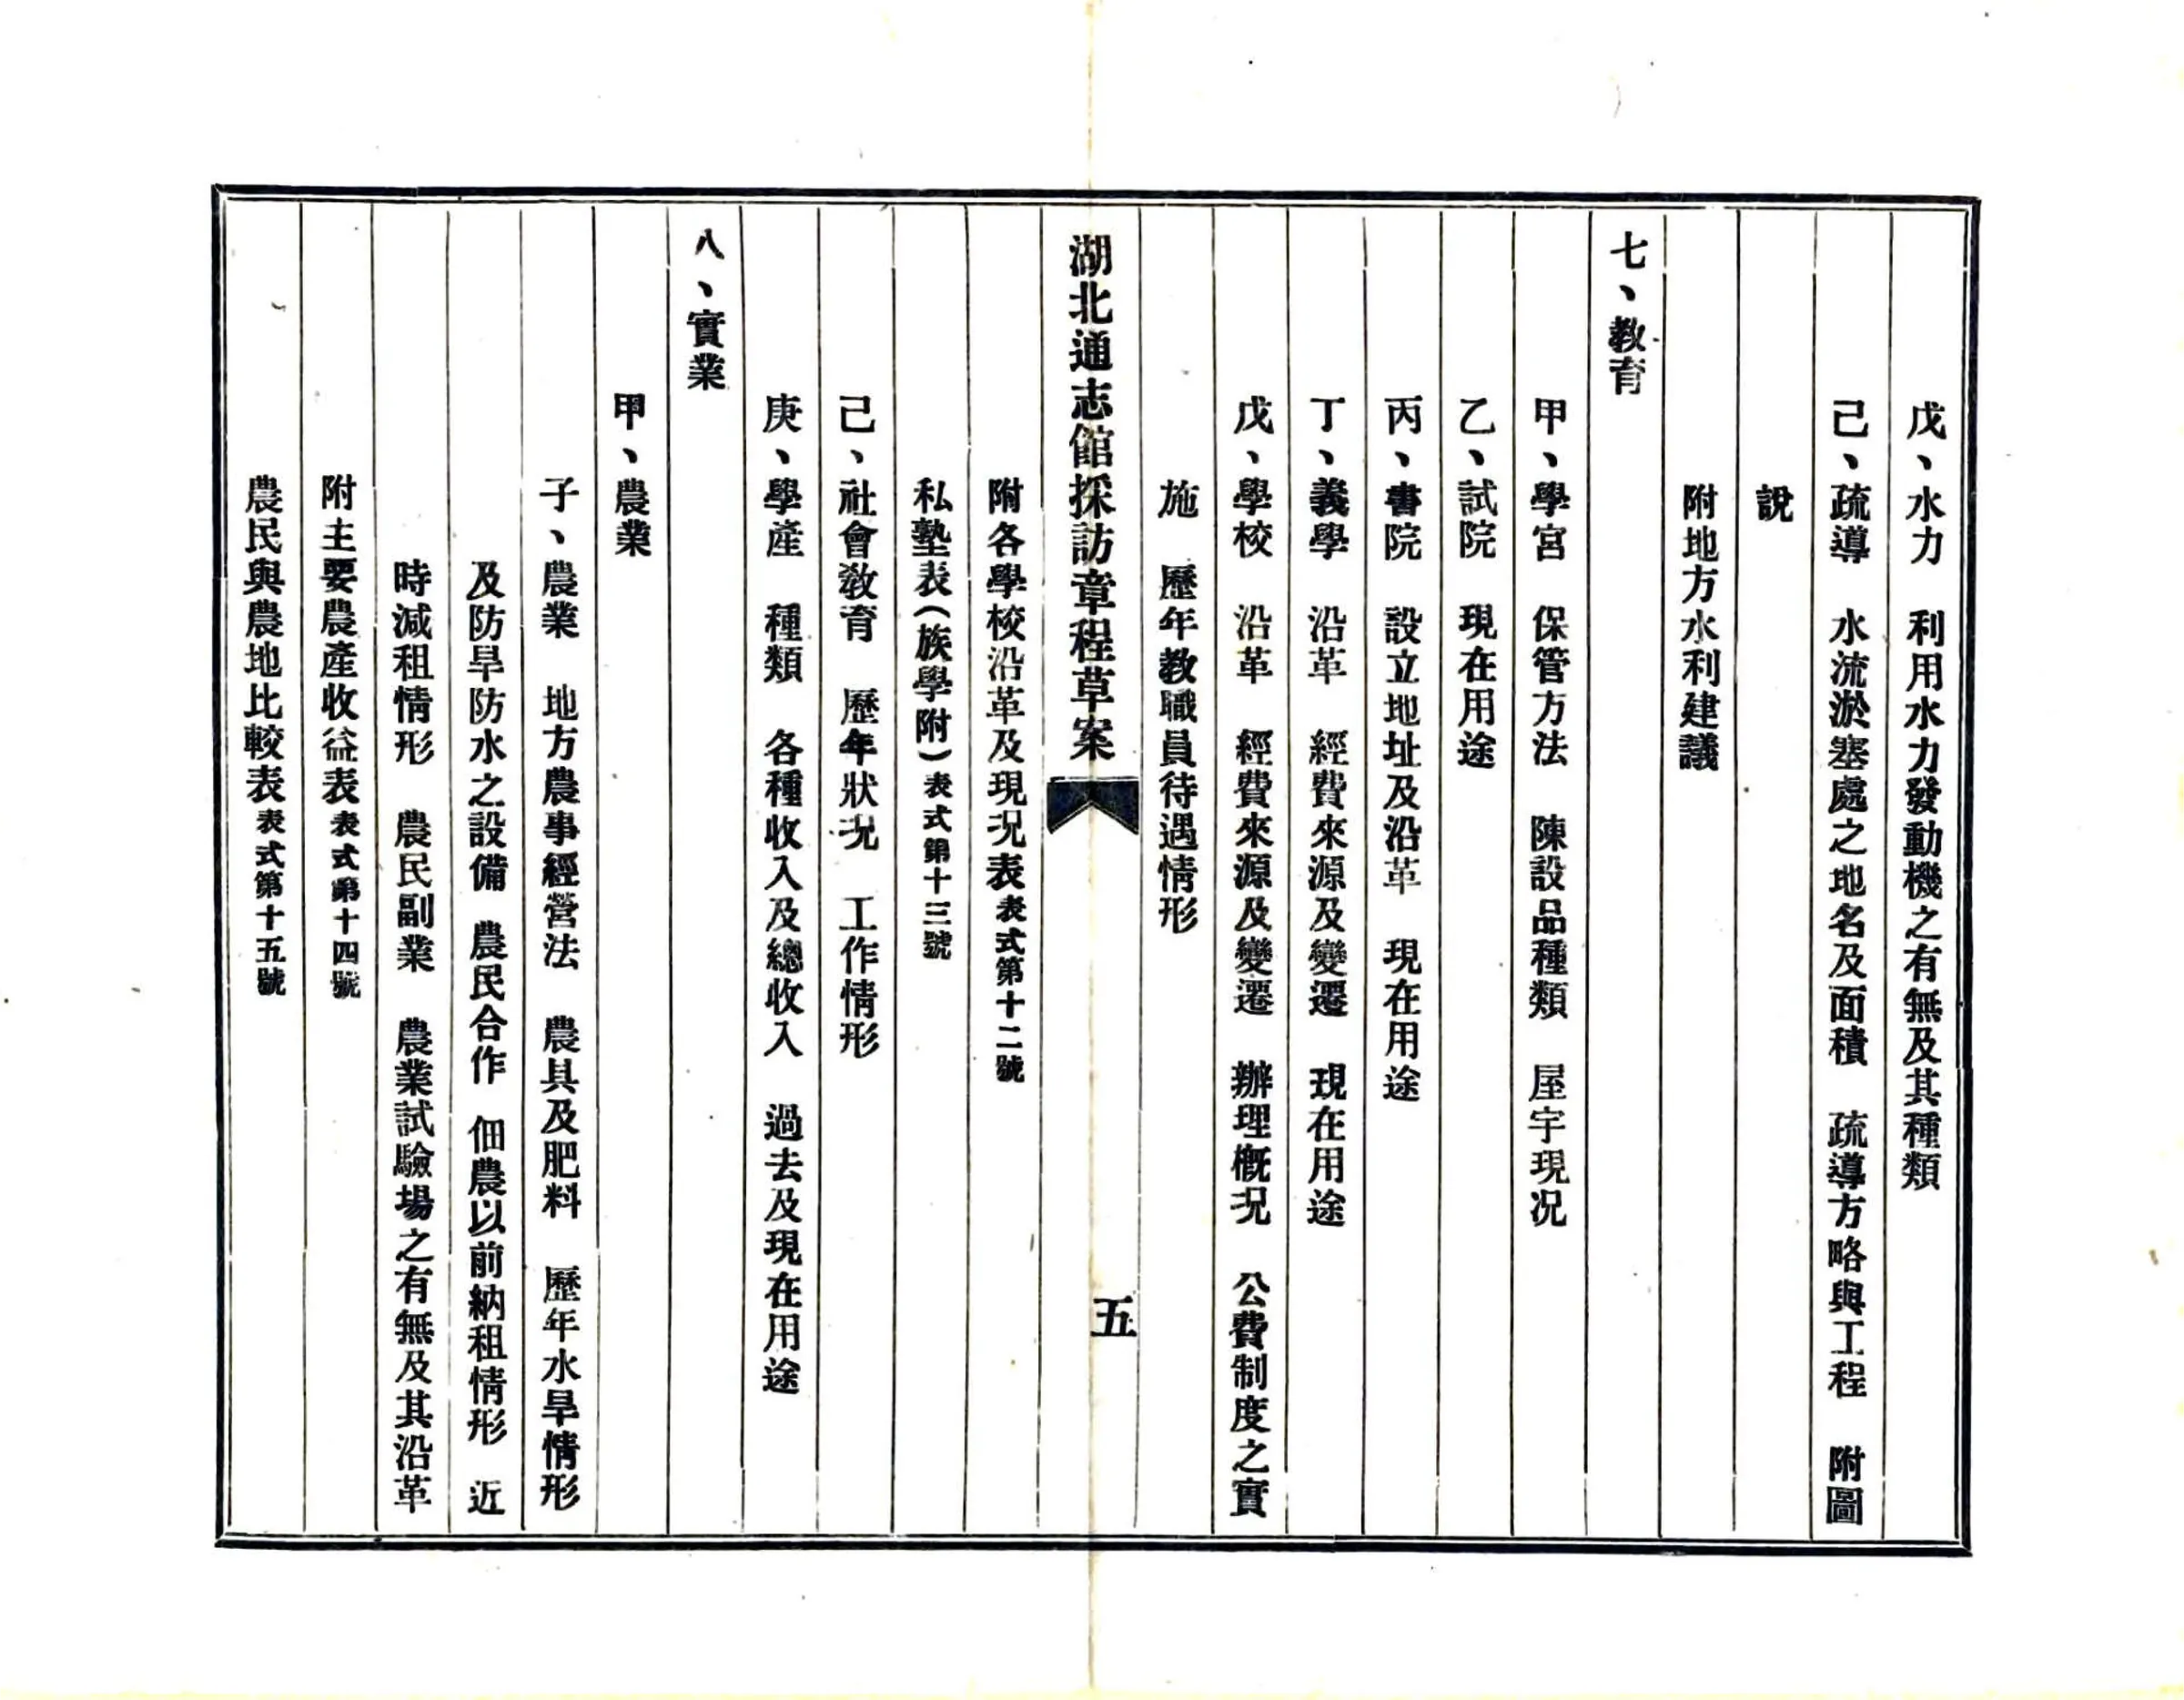 戊、水力　利用水力發動機之有無及其種類
己、疏導　水流淤塞處之地名及面積　疏導方略與工程　附圖
說
附地方水利建議
七、教育
甲、學宮　保管方法　陳設品種類　屋宇現况
乙、試院　現在用途
丙、書院　設立地址及沿革　現在用途
丁、義學　沿革　經費來源及變遷　現在用途
戊、學校　沿革　經費來源及變遷　辦理概况　公費制度之實
施　歷年教職員待遇情形
湖北通志館採訪章程草案
五
附各學校沿革及現况表表式第十二號
私塾表（族學附）表式第十三號
己、社會敎育　歷年狀况　工作情形
庚、學產　種類　各種收入及總收入　過去及現在用途
八、實業
甲、農業
子、農業　地方農事經營法　農具及肥料　歷年水旱情形
及防旱防水之設備　農民合作　佃農以前納租情形　近
時減租情形　農民副業　農業試驗場之有無及其沿革
附主要農產收益表表式第十四號
農民與農地比較表表式第十五號